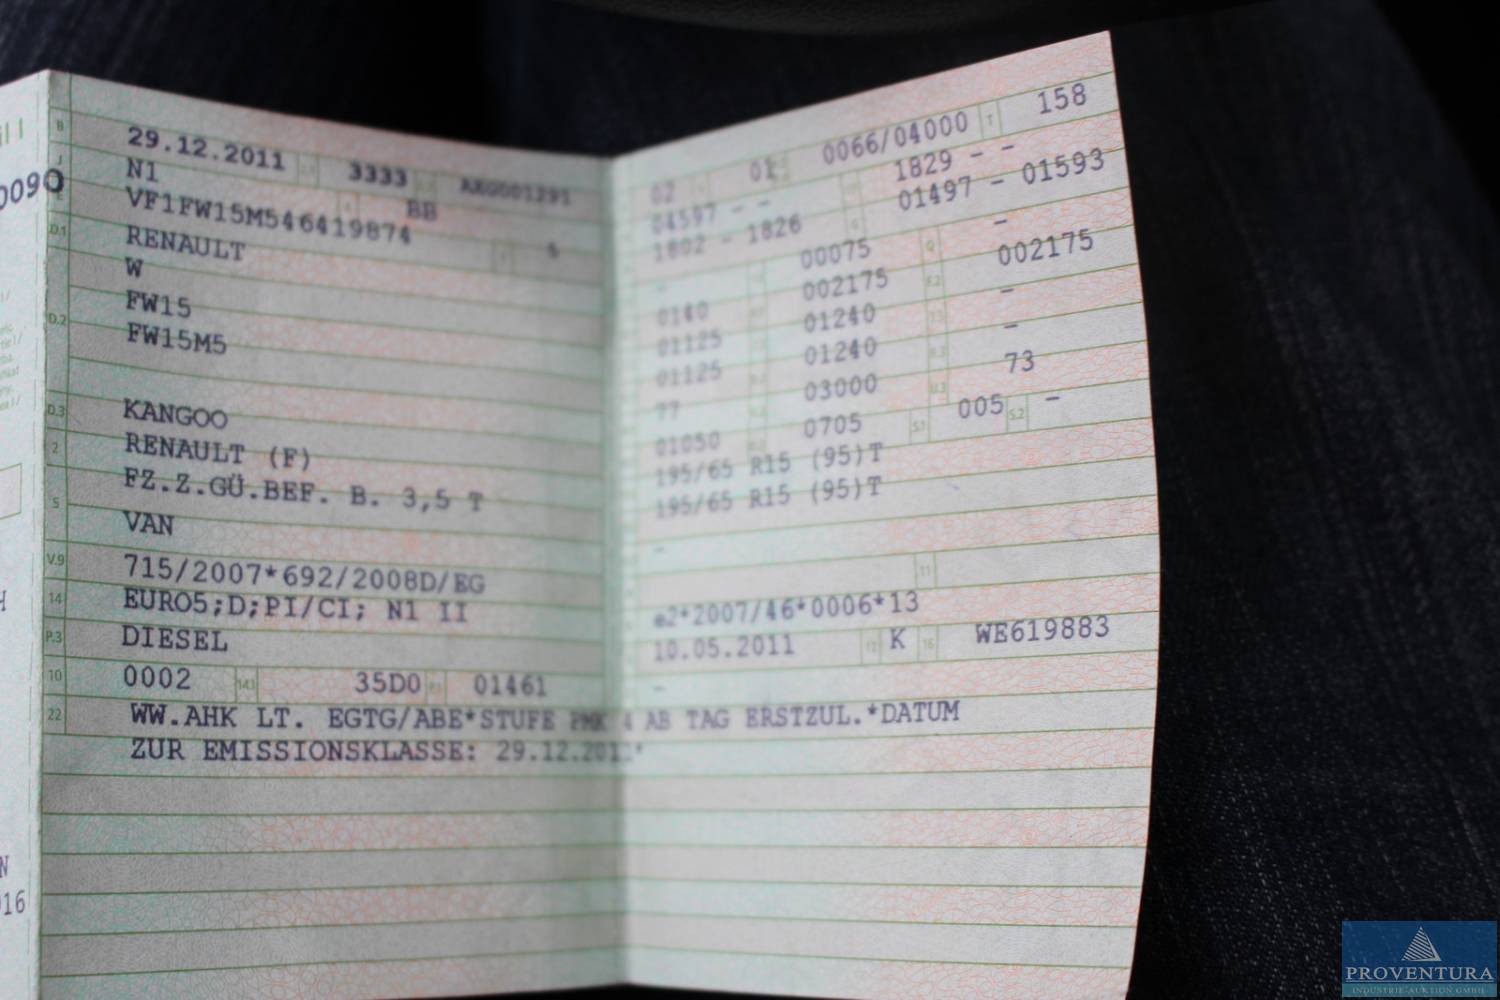 B 29.12.2011 3333
J N1 BB
E VF1FW15M546419874 5
D.1 RENAULT
W
D.2 FW15
FW15M5
D.3 KANGOO
2 RENAULT (F)
FZ.Z.GÜ.BEF. B. 3,5 T
5 VAN
V.9 715/2007*692/2008D/EG
14 EURO5;D;PI/CI; N1 II
P.3 DIESEL
10 0002 14.1 35D0 P.1 01461
22 WW.AHK LT. EGTG/ABE*STUFE PMK 4 AB TAG ERSTZUL.*DATUM
ZUR EMISSIONSKLASSE: 29.12.2011*
02 01 0066/04000 T 158
04597 - - 1829 - -
1802 - 1826 01497 - 01593
- 00075 Q -
0140 002175 F.2 002175
01125 01240 -
01125 01240 -
77 03000 U.3 73
01050 0705 S.1 005 S.2 -
195/65 R15 (95)T
195/65 R15 (95)T
-
11
e2*2007/46*0006*13
10.05.2011 17 K 16 WE619883
-
0090
N
016
PROVENTURA
INDUSTRIE-AUKTION GMBH